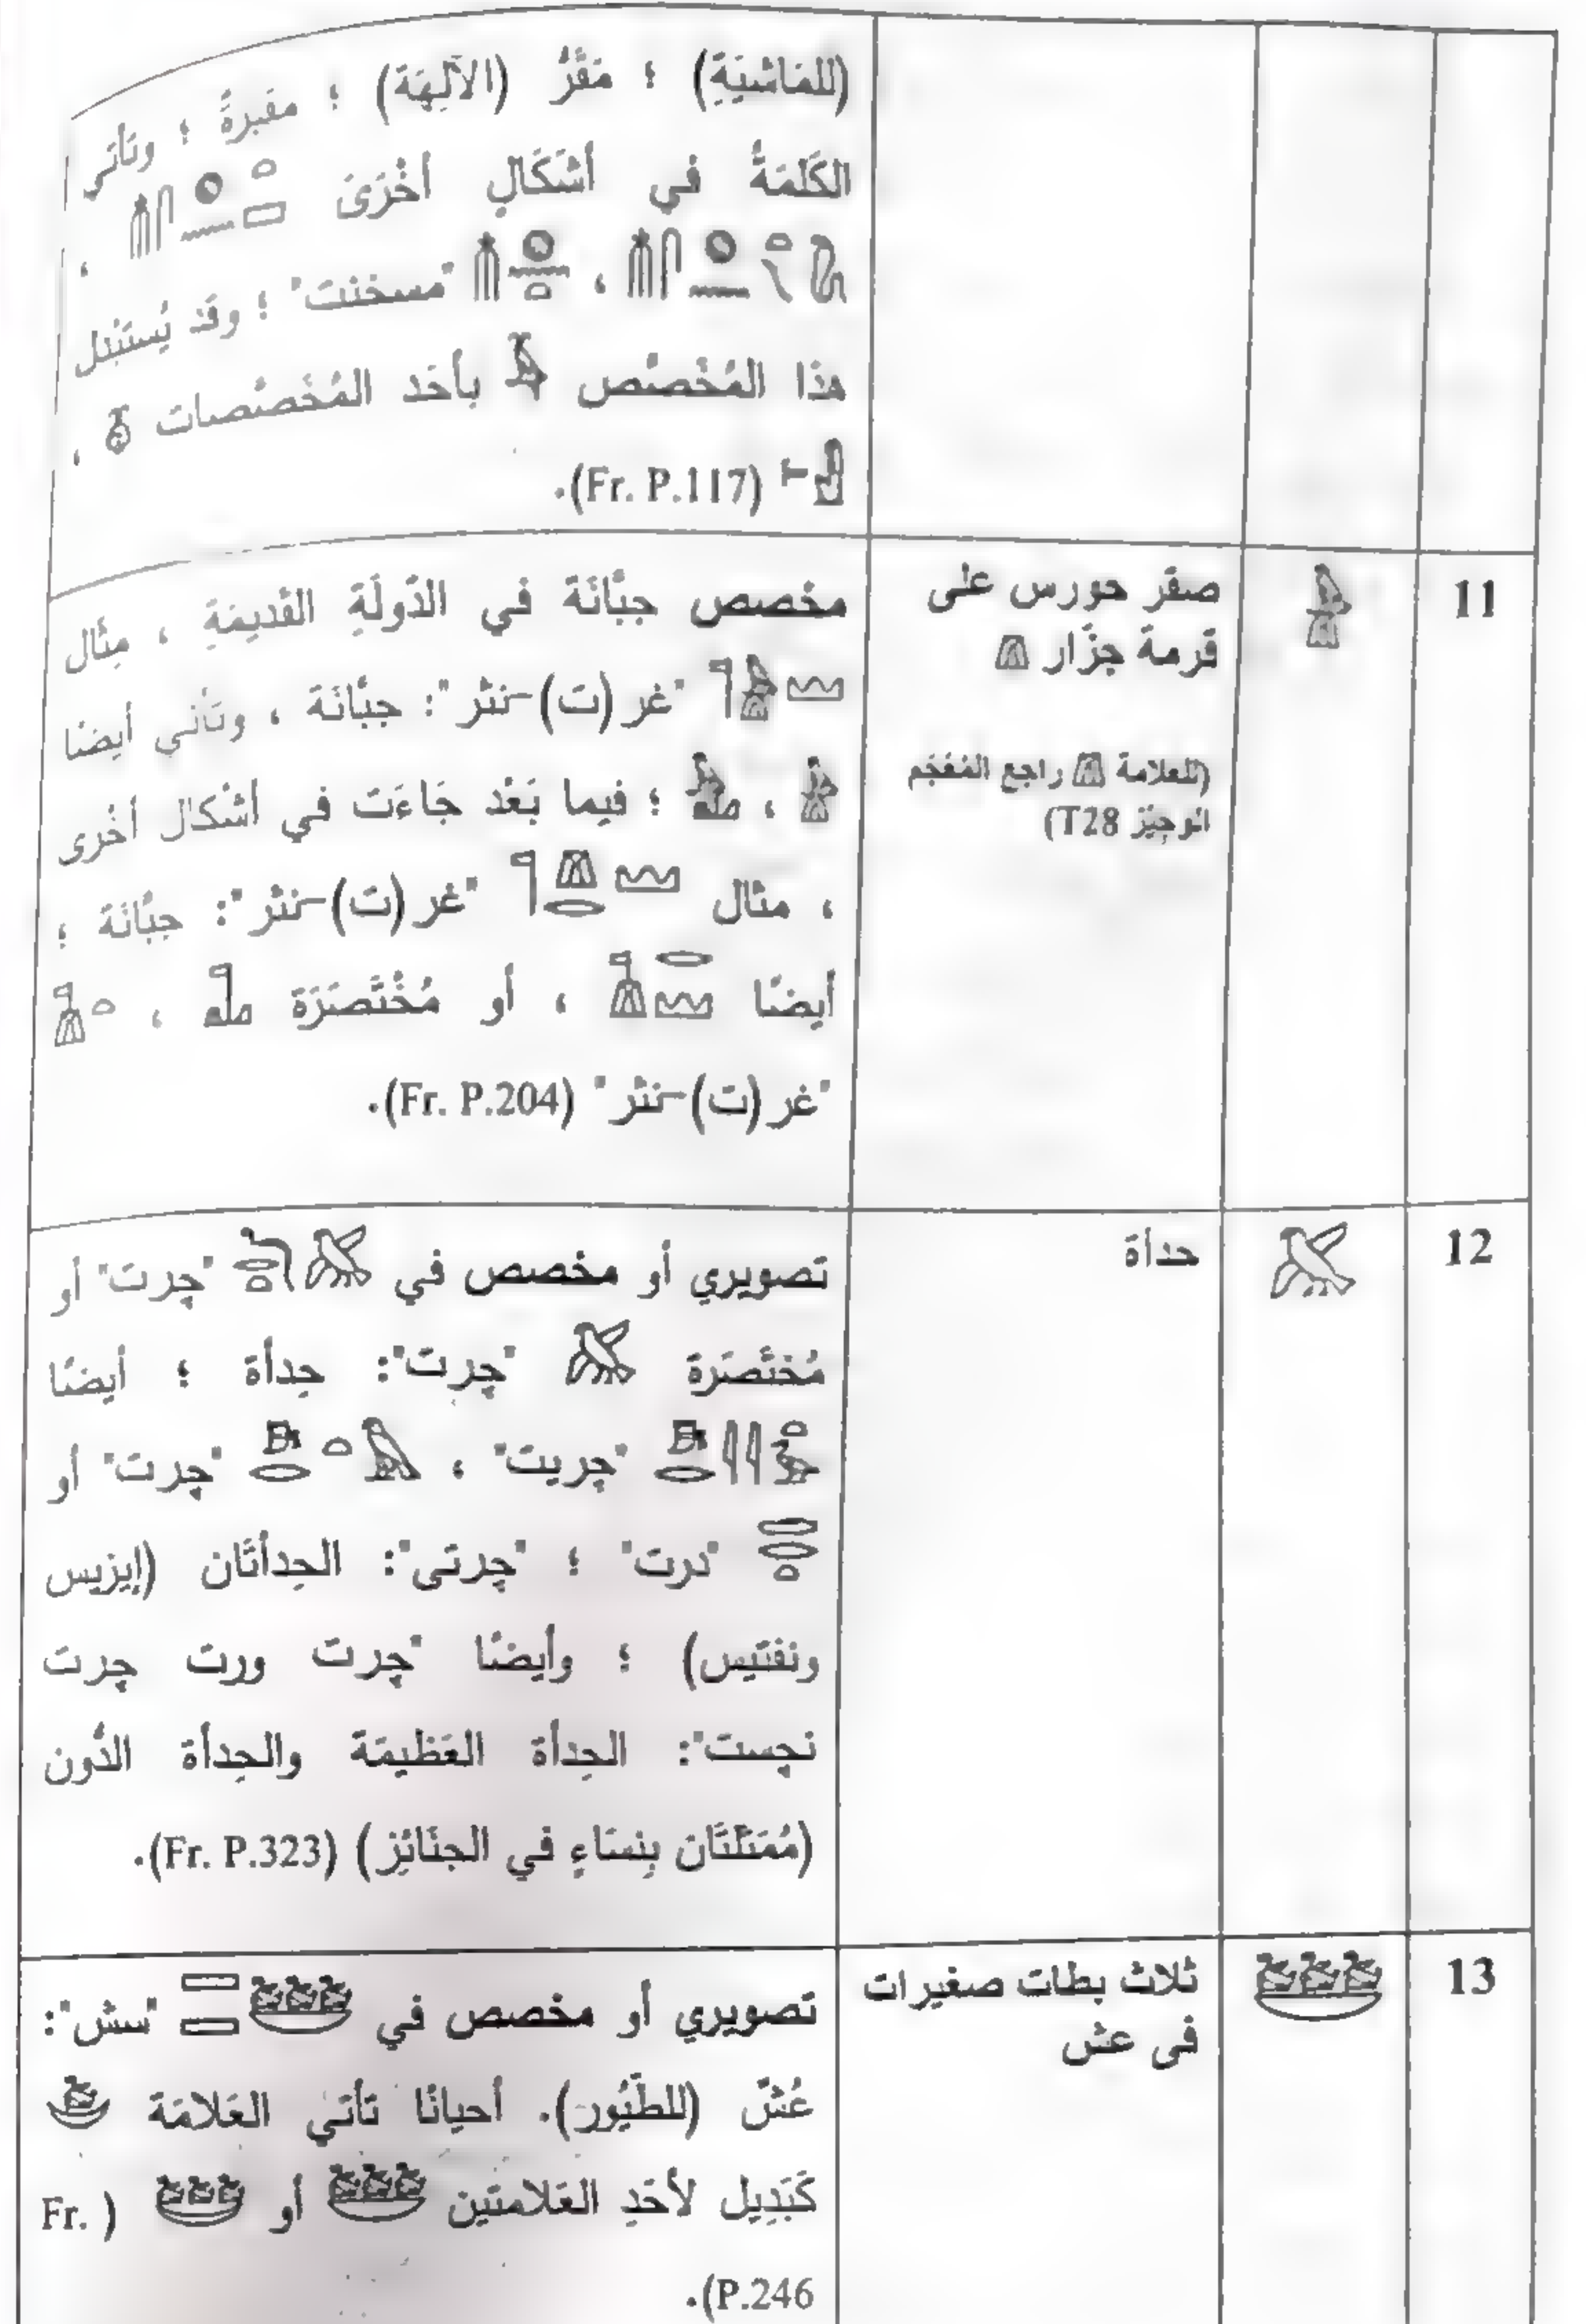 (للمَاشيَةِ) ؛ مَقَرُّ (الآلِهَة) ؛ مقبرةً ؛ وتأتي
الكَلمَةُ في أشكَالٍ أخْرَىَ ،
، "مسخنت" ؛ وقد يُستَبْدل
هذَا المُخَصّص بأحَد المُخَصّصات ،
(Fr. P.117).
11
صقر حورس على
قرمة جزَّار
(للعلامة راجع المُعْجَم
الوجيز T28)
مخصص جبَّانَة في الدّولَةِ القَديمَةِ ، مِثَال
"غر(ت)-نثر": جبَّانَة ، وتَأتي أيضًا
، ؛ فيما بَعْد جَاءَت في أشْكال أخْرى
، مثال "غر(ت)-نثر": جبَّانَة ؛
أيضًا ، أو مُخْتَصَرَة ،
"غر(ت)-نثر" (Fr. P.204).
12
حدأة
تصويري أو مخصص في "چرت" أو
مُختَصَرة "چرت": حِدأة ؛ أيضًا
"چريت" ، "چرت" أو
"درت" ؛ "چرتى": الحِدأتَان (إيزيس
ونفتيس) ؛ وأيضًا "چرت ورت چرت
نچست": الحِدأة العَظيمَة والحِدأة الدُّون
(مُمَثلتَان بِنسَاءٍ في الجنَائِز) (Fr. P.323).
13
ثلاث بطات صغيرات
فى عش
تصويري أو مخصص في "سش":
عُشّ (للطّيُور). أحيانًا تأتي العَلامَة
كَبَدِيل لأحَدِ العَلامتَين أو ( Fr.
P.246).